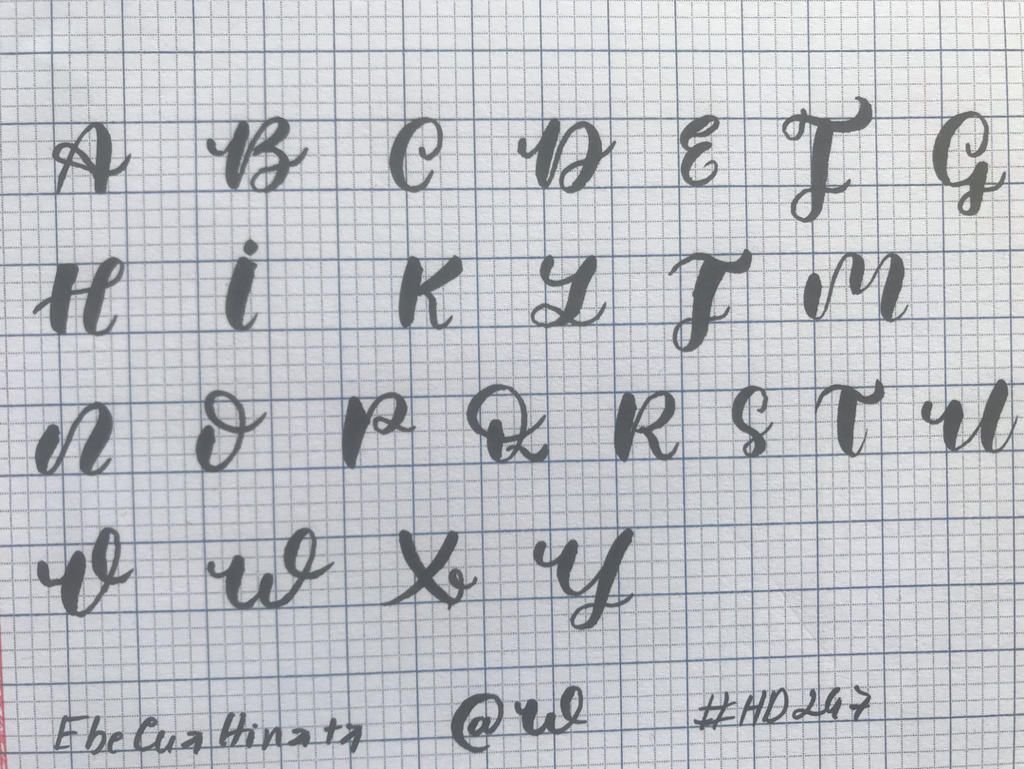 A B C D E F G
H i K L J M
N O P Q R S T U
V W X Y
EbeCuaHinata @w #HD247